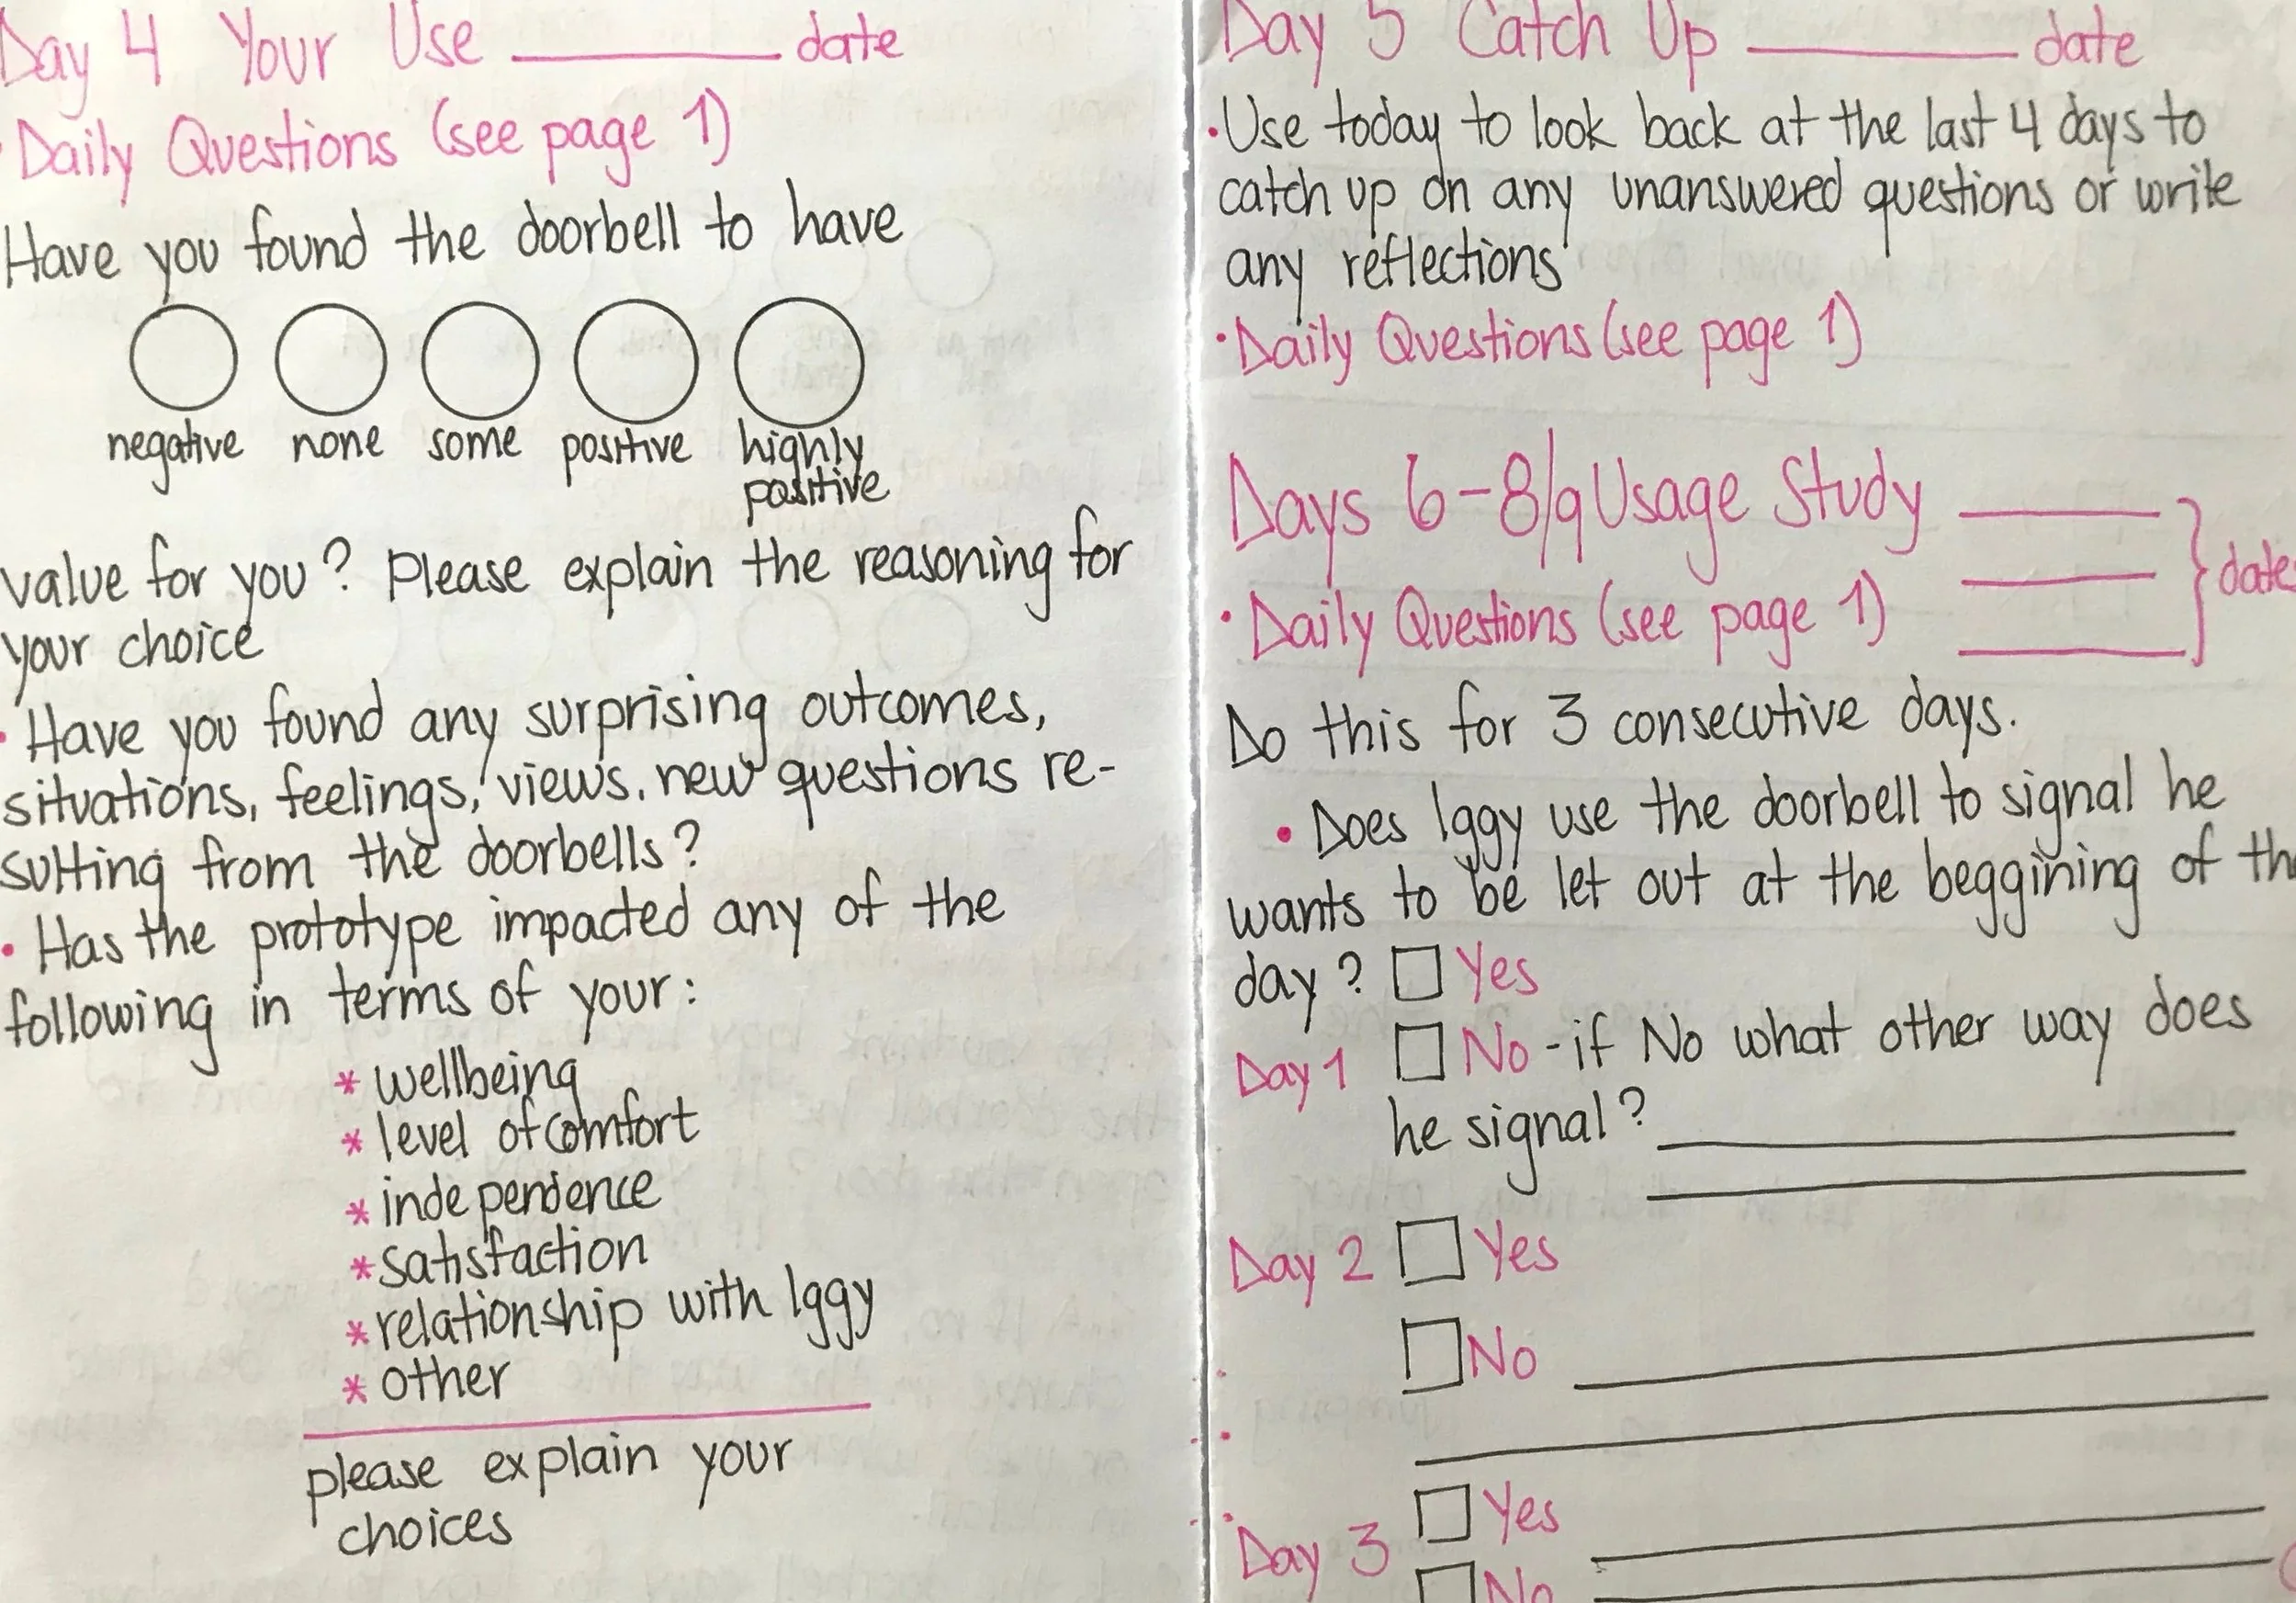 Day 4 Your Use ________ date
• Daily Questions (see page 1)
Have you found the doorbell to have
negative none some positive highly
positive
value for you? Please explain the reasoning for
your choice
• Have you found any surprising outcomes,
situations, feelings, views, new questions re-
sulting from the doorbells?
• Has the prototype impacted any of the
following in terms of your:
* wellbeing
* level of comfort
* independence
* satisfaction
* relationship with Iggy
* other
please explain your
choices
Day 5 Catch Up ________ date
• Use today to look back at the last 4 days to
catch up on any unanswered questions or write
any reflections
• Daily Questions (see page 1)
Days 6-8/9 Usage Study ________
• Daily Questions (see page 1) ________ } date
Do this for 3 consecutive days.
• Does Iggy use the doorbell to signal he
wants to be let out at the beggining of
day? □ Yes
Day 1 □ No - if No what other way does
he signal? ________
Day 2 □ Yes
□ No ________
Day 3 □ Yes ________
□ No ________